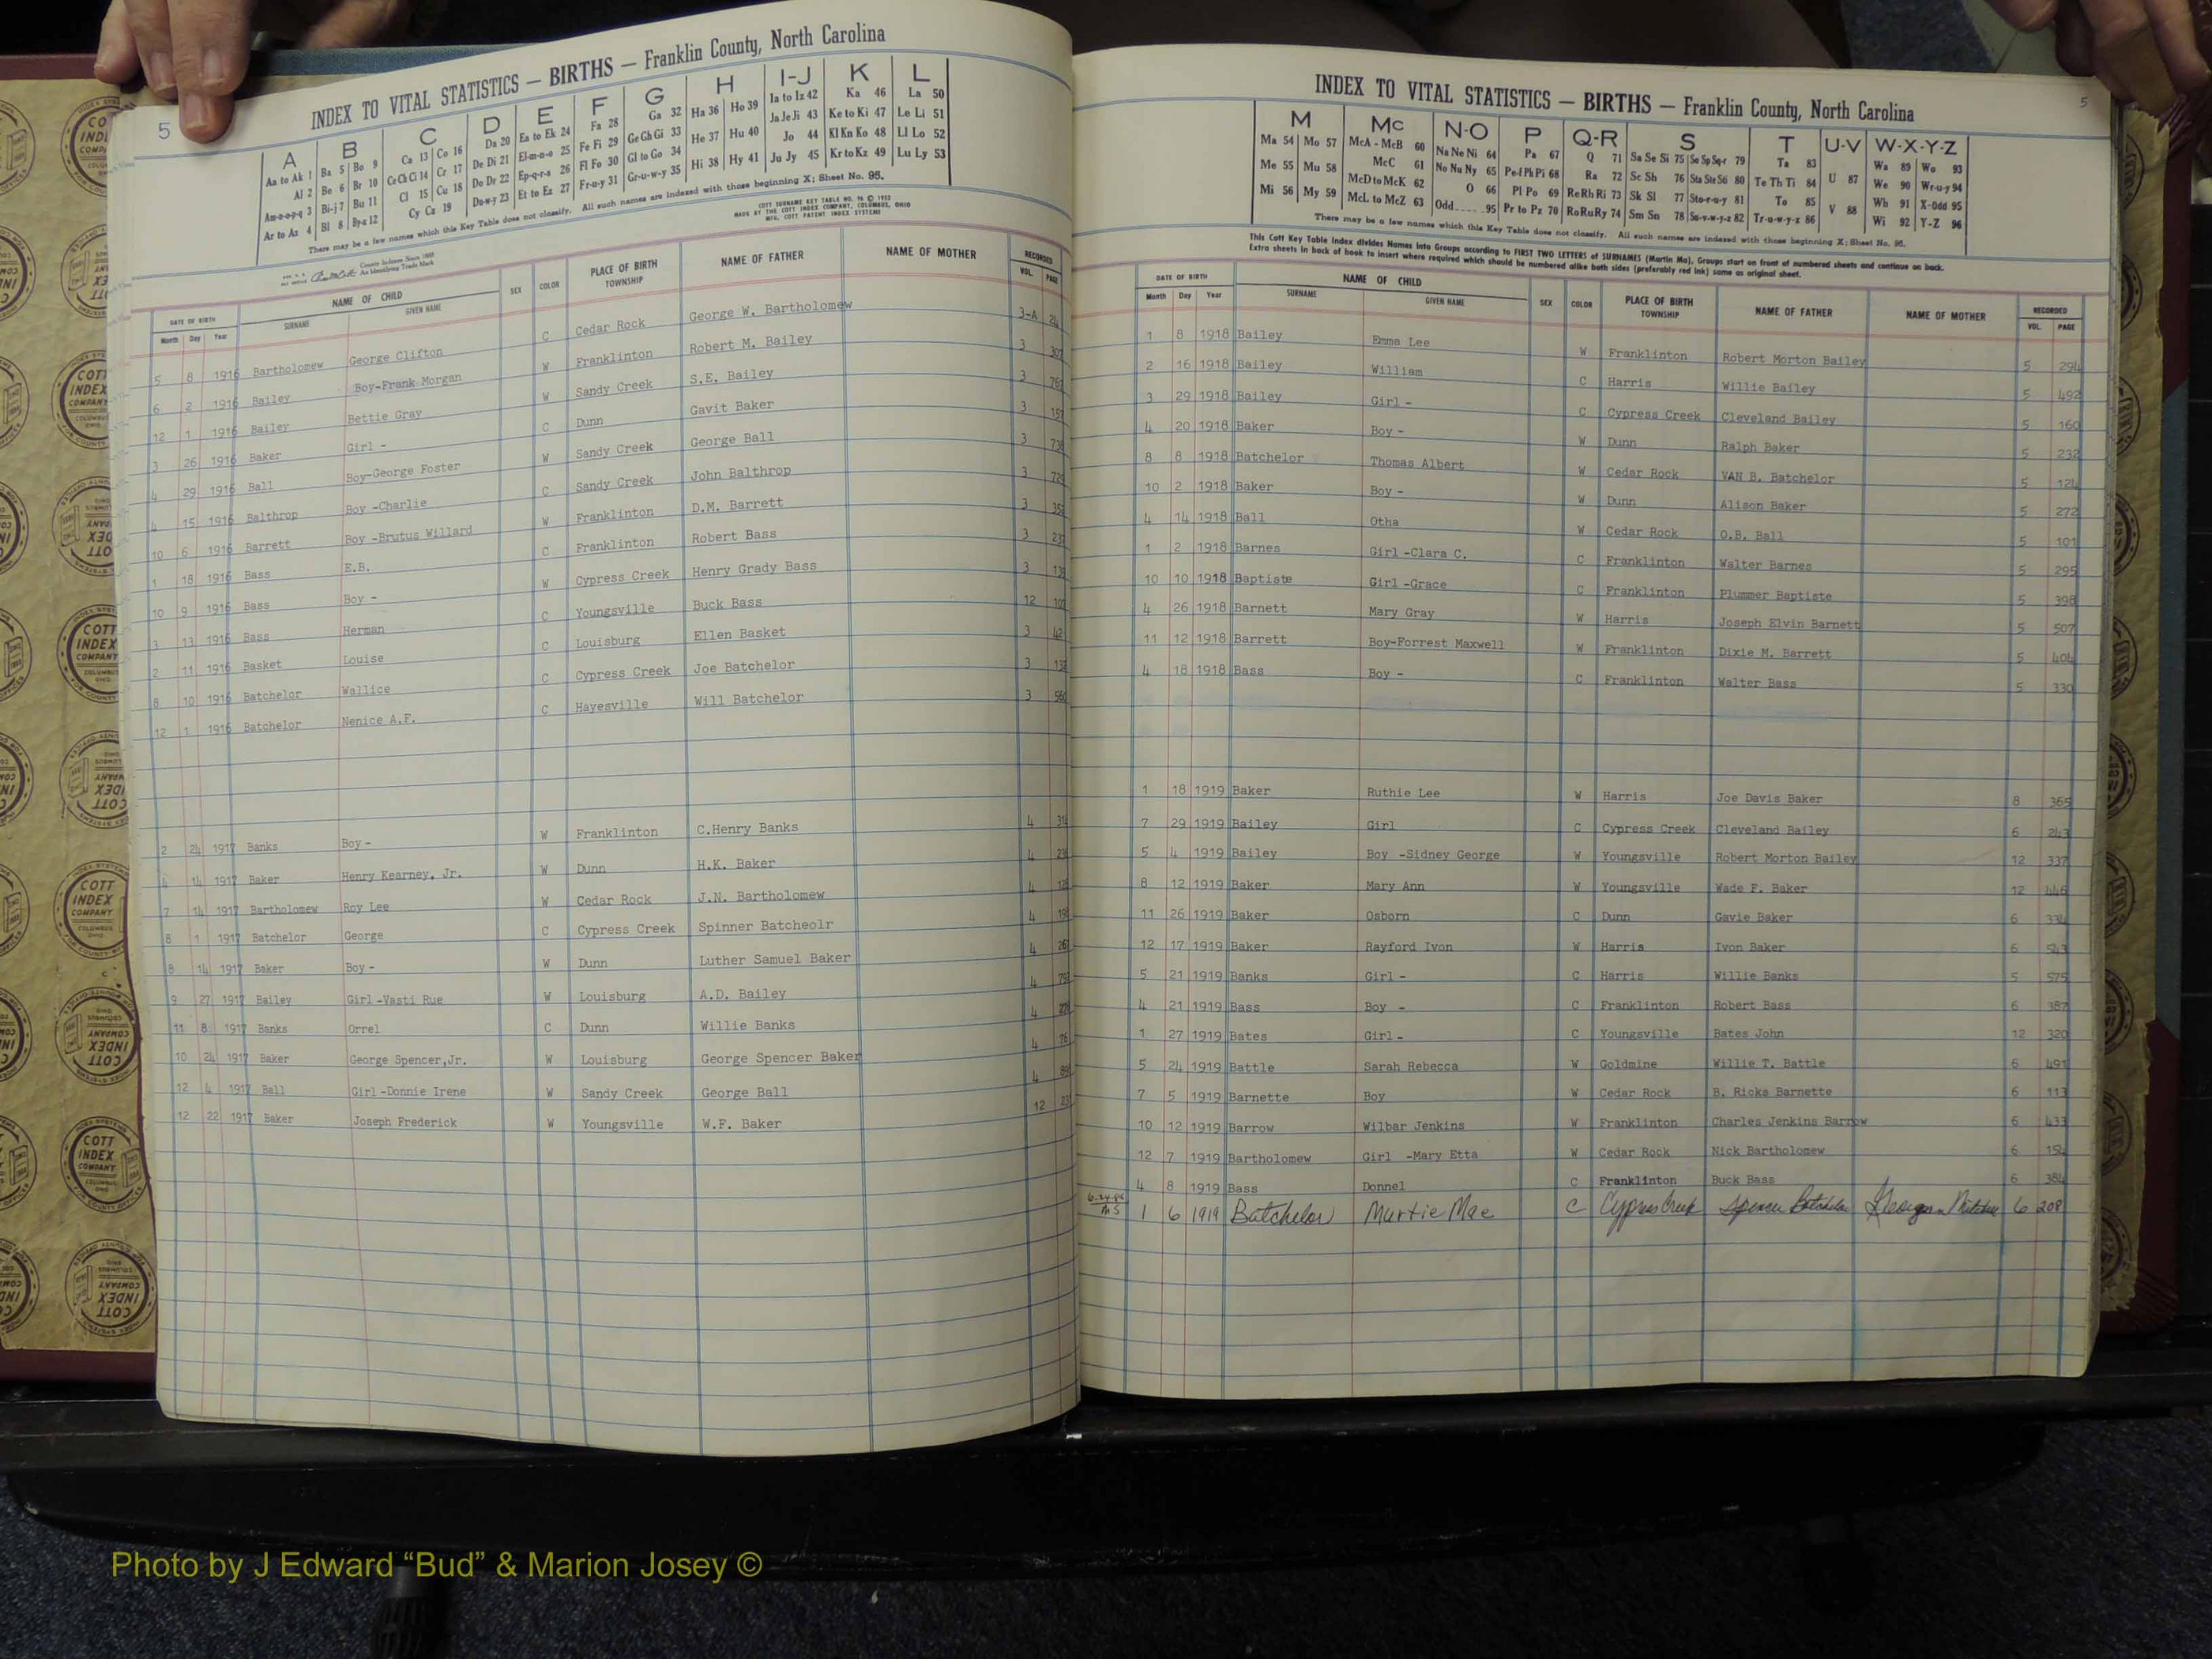 5
INDEX TO VITAL STATISTICS — BIRTHS — Franklin County, North Carolina
A B C D E F G H I-J K L
Aa to Ak 1 Ba 5 Bo 9 Ca 13 Co 16 Da 20 Ea to Ek 24 Fa 28 Ga 32 Ha 36 Ho 39 Ia to Iz 42 Ka 46 La 50
Al 2 Be 6 Br 10 Ce Ch Ci 14 Cr 17 De Di 21 El-m-n-o 25 Fe Fi 29 Ge Gh Gi 33 He 37 Hu 40 Ja Je Ji 43 Ke to Ki 47 Le Li 51
Am-n-o-p-q 3 Bi-j 7 Bu 11 Cl 15 Cu 18 Do Dr 22 Ep-q-r-s 26 Fl Fo 30 Gl to Go 34 Hi 38 Hy 41 Jo 44 Kl Kn Ko 48 Ll Lo 52
Ar to Az 4 Bl 8 By-z 12 Cy Cz 19 Du-w-y 23 Et to Ez 27 Fr-u-y 31 Gr-u-w-y 35 Ju Jy 45 Kr to Kz 49 Lu Ly 53
There may be a few names which this Key Table does not classify. All such names are indexed with those beginning X; Sheet No. 95.
COTT SURNAME KEY TABLE NO. 96 © 1952
MADE BY THE COTT INDEX COMPANY, COLUMBUS, OHIO
MFG. COTT PATENT INDEX SYSTEMS
County Indexes Since 1888
An Identifying Trade Mark
DATE OF BIRTH NAME OF CHILD SEX COLOR PLACE OF BIRTH TOWNSHIP NAME OF FATHER NAME OF MOTHER RECORDED
Month Day Year SURNAME GIVEN NAME VOL. PAGE
5 8 1916 Bartholomew George Clifton C Cedar Rock George W. Bartholomew 3-A
6 2 1916 Bailey Boy-Frank Morgan W Franklinton Robert M. Bailey 3 307
12 1 1916 Bailey Bettie Gray W Sandy Creek S.E. Bailey 3
3 26 1916 Baker Girl - C Dunn Gavit Baker 3
4 29 1916 Ball Boy-George Foster W Sandy Creek George Ball 3
4 15 1916 Balthrop Boy -Charlie C Sandy Creek John Balthrop 3
10 6 1916 Barrett Boy -Brutus Willard W Franklinton D.M. Barrett 3
1 18 1916 Bass E.B. C Franklinton Robert Bass 3
10 9 1916 Bass Boy - W Cypress Creek Henry Grady Bass 3
3 13 1916 Bass Herman C Youngsville Buck Bass 12
2 11 1916 Basket Louise C Louisburg Ellen Basket 3
8 10 1916 Batchelor Wallice C Cypress Creek Joe Batchelor 3
12 1 1916 Batchelor Nenice A.F. C Hayesville Will Batchelor 3
2 24 1917 Banks Boy - W Franklinton C.Henry Banks 4
4 14 1917 Baker Henry Kearney, Jr. W Dunn H.K. Baker 4
7 14 1917 Bartholomew Roy Lee W Cedar Rock J.N. Bartholomew 4
8 1 1917 Batchelor George C Cypress Creek Spinner Batcheolr 4
8 14 1917 Baker Boy - W Dunn Luther Samuel Baker 4
9 27 1917 Bailey Girl -Vasti Rue W Louisburg A.D. Bailey 4
11 8 1917 Banks Orrel C Dunn Willie Banks 4
10 24 1917 Baker George Spencer,Jr. W Louisburg George Spencer Baker 4
12 4 1917 Ball Girl -Donnie Irene W Sandy Creek George Ball 4
12 22 1917 Baker Joseph Frederick W Youngsville W.F. Baker 12
5
INDEX TO VITAL STATISTICS — BIRTHS — Franklin County, North Carolina
M Mc N-O P Q-R S T U-V W-X-Y-Z
Ma 54 Mo 57 McA - McB 60 Na Ne Ni 64 Pa 67 Q 71 Sa Se Si 75 Se Sp Sq-r 79 Ta 83 U 87 Wa 89 Wo 93
Me 55 Mu 58 McC 61 No Nu Ny 65 Pe-f Ph Pi 68 Ra 72 Sc Sh 76 Sta Ste Sti 80 Te Th Ti 84 V 88 We 90 Wr-u-y 94
Mi 56 My 59 McD to McK 62 O 66 Pl Po 69 Re Rh Ri 73 Sk Sl 77 Sto-r-u-y 81 To 85 Wh 91 X-Odd 95
McL to McZ 63 Odd 95 Pr to Pz 70 Ro Ru Ry 74 Sm Sn 78 Su-v-w-y-z 82 Tr-u-w-y-z 86 Wi 92 Y-Z 96
There may be a few names which this Key Table does not classify. All such names are indexed with those beginning X; Sheet No. 95.
This Cott Key Table Index divides Names into Groups according to FIRST TWO LETTERS of SURNAMES (Martin Ma), Groups start on front of numbered sheets and continue on back.
Extra sheets in back of book to insert where required which should be numbered alike both sides (preferably red ink) same as original sheet.
DATE OF BIRTH NAME OF CHILD SEX COLOR PLACE OF BIRTH TOWNSHIP NAME OF FATHER NAME OF MOTHER RECORDED
Month Day Year SURNAME GIVEN NAME VOL. PAGE
1 8 1918 Bailey Emma Lee W Franklinton Robert Morton Bailey 5 294
2 16 1918 Bailey William C Harris Willie Bailey 5 492
3 29 1918 Bailey Girl - C Cypress Creek Cleveland Bailey 5 160
4 20 1918 Baker Boy - W Dunn Ralph Baker 5 232
8 8 1918 Batchelor Thomas Albert W Cedar Rock VAN B. Batchelor 5 124
10 2 1918 Baker Boy - W Dunn Alison Baker 5 272
4 14 1918 Ball Otha W Cedar Rock O.B. Ball 5 101
1 2 1918 Barnes Girl -Clara C. C Franklinton Walter Barnes 5 295
10 10 1918 Baptiste Girl -Grace C Franklinton Plummer Baptiste 5 398
4 26 1918 Barnett Mary Gray W Harris Joseph Elvin Barnett 5 507
11 12 1918 Barrett Boy-Forrest Maxwell W Franklinton Dixie M. Barrett 5 404
4 18 1918 Bass Boy - C Franklinton Walter Bass 5 330
1 18 1919 Baker Ruthie Lee W Harris Joe Davis Baker 8 365
7 29 1919 Bailey Girl C Cypress Creek Cleveland Bailey 6 243
5 4 1919 Bailey Boy -Sidney George W Youngsville Robert Morton Bailey 12 337
8 12 1919 Baker Mary Ann W Youngsville Wade F. Baker 12 446
11 26 1919 Baker Osborn C Dunn Gavie Baker 6 334
12 17 1919 Baker Rayford Ivon W Harris Ivon Baker 6 543
5 21 1919 Banks Girl - C Harris Willie Banks 5 575
4 21 1919 Bass Boy - C Franklinton Robert Bass 6 387
1 27 1919 Bates Girl - C Youngsville Bates John 12 320
5 24 1919 Battle Sarah Rebecca W Goldmine Willie T. Battle 6 491
7 5 1919 Barnette Boy W Cedar Rock B. Ricks Barnette 6 113
10 12 1919 Barrow Wilbar Jenkins W Franklinton Charles Jenkins Barrow 6 433
12 7 1919 Bartholomew Girl -Mary Etta W Cedar Rock Nick Bartholomew 6 154
4 8 1919 Bass Donnel C Franklinton Buck Bass 6 384
1 6 1919 Batchelor Murtie Mae C Cypress Creek Spencer Batchelor 6 208
Photo by J Edward “Bud” & Marion Josey ©